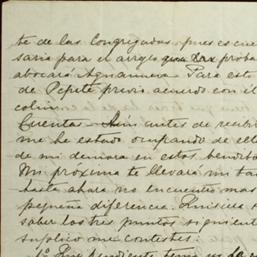 te de las Congregadas, pues es cue
saria para el arreglo que la proba
abocará Para este
de Pepito previo acuerdo con el
colin
Cuenta. Aun antes de recibi
me he estado ocupando de ella
de mi demora en estos bendito
Mi proxima te llevará mi tan
hasta ahora no encuentro mas
pequeña diferencia.
saber los tres puntos siguient
suplico me contestes:
1º Que pendiente